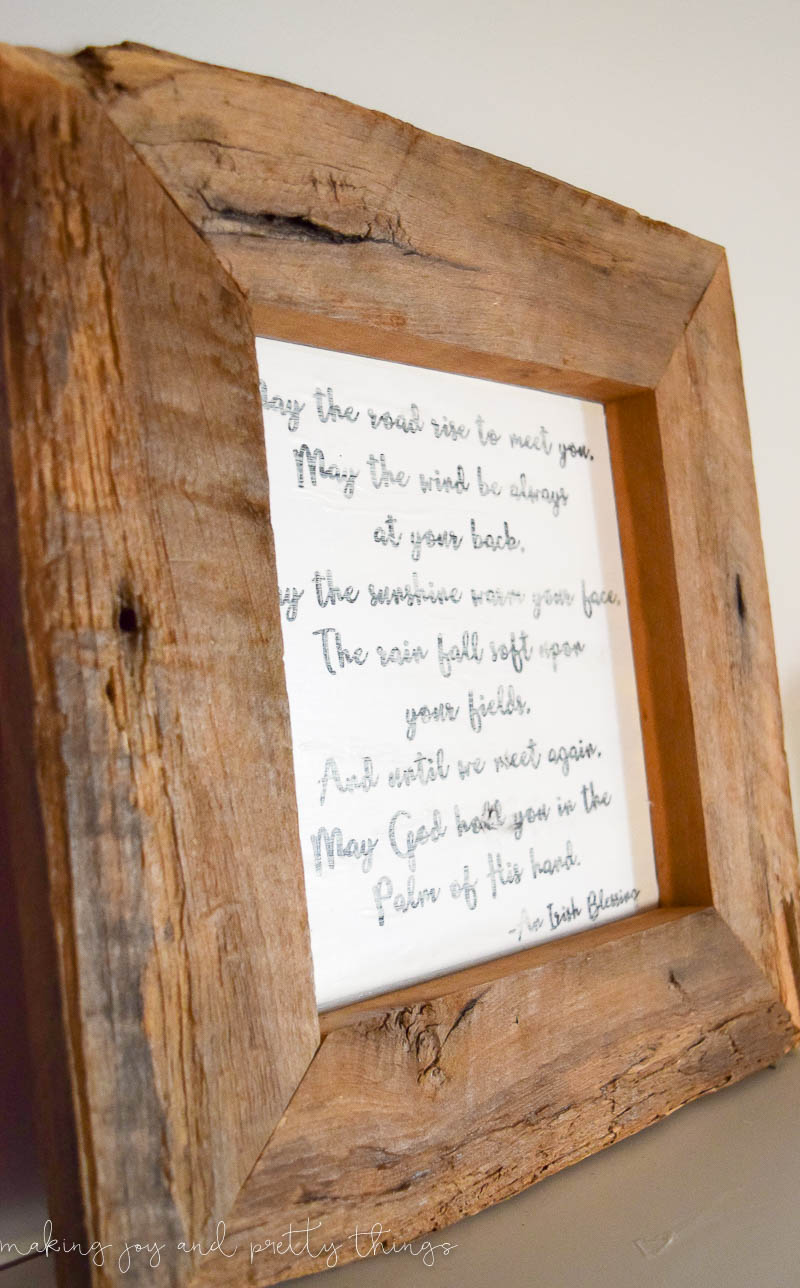 May the road rise to meet you.
May the wind be always
at your back.
May the sunshine warm your face.
The rain fall soft upon
your fields.
And until we meet again.
May God hold you in the
Palm of His hand.
-An Irish Blessing
making joy and pretty things